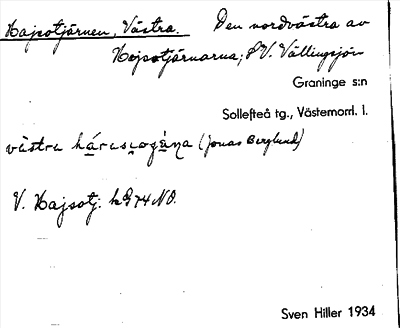 Hajsotjärnen, Västra. Den nordvästra av
Hojsotjärnarna; SV. Vällingsjön
Graninge s:n
Sollefteå tg., Västernorrl. l.
västra (Jonas Berglund)
V. Hajsotj. kG 74 NO.
Sven Hiller 1934